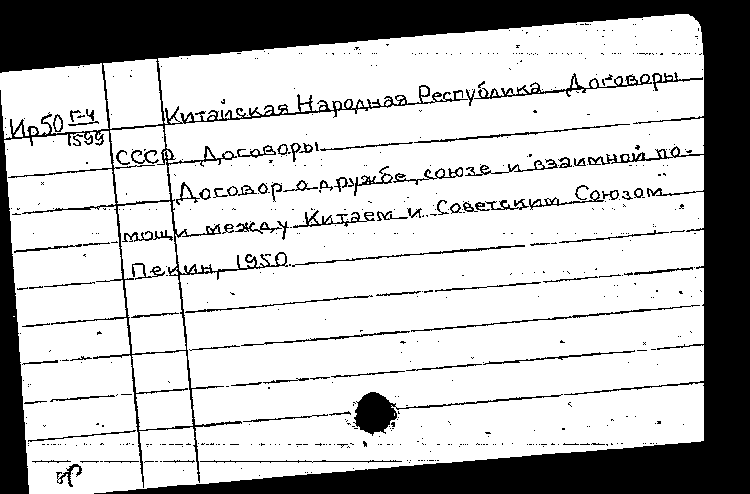 Ир50 Г-4
1599
Китайская Народная Республика. Договоры
СССР. Договоры.
Договор о дружбе, союзе и взаимной по-
мощи между Китаем и Советским Союзом.
Пекин, 1950.